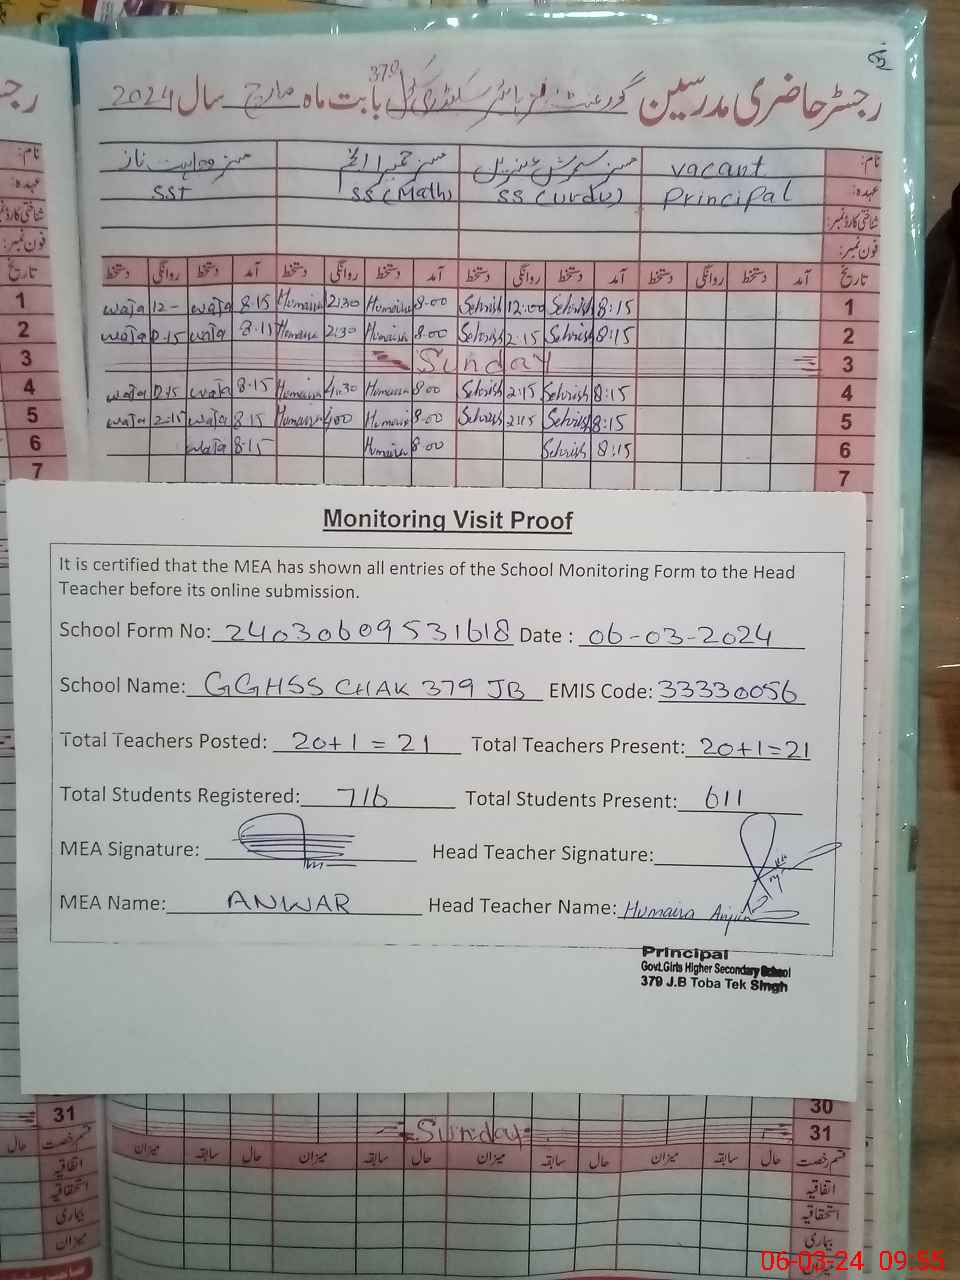 رجسٹر حاضری مدرسین گورنمنٹ گرلز ہائر سیکنڈری سکول 379 بابت ماہ مارچ سال 2024
نام: vacant
عہدہ: Principal SS (Urdu) SS (Math) SST
شناختی کارڈ نمبر:
فون نمبر:
تاریخ آمد دستخط روانگی دستخط آمد دستخط روانگی دستخط آمد دستخط روانگی دستخط آمد دستخط روانگی دستخط
1 8:15 Sehrish 12:00 Sehrish 8-00 Humaira 2:30 Humaira 8-15 12-
2 8:15 Sehrish 2:15 Sehrish 8-00 Humaira 2:30 Humaira 8-15
3 Sunday
4 8:15 Sehrish 2:15 Sehrish 8-00 Humaira 4:30 Humaira 8-15
5 8:15 Sehrish 2:15 Sehrish 8-00 Humaira 8-15 2-15
6 8:15 Sehrish 8-00 Humaira 8-15
7
Monitoring Visit Proof
It is certified that the MEA has shown all entries of the School Monitoring Form to the Head
Teacher before its online submission.
School Form No: 24030609531618 Date : 06-03-2024
School Name: GGHSS CHAK 379 JB EMIS Code: 33330056
Total Teachers Posted: 20+1=21 Total Teachers Present: 20+1=21
Total Students Registered: 716 Total Students Present: 611
MEA Signature: Head Teacher Signature:
MEA Name: ANWAR Head Teacher Name: Humaira Anjum
Principal
Govt.Girls Higher Secondary School
379 J.B Toba Tek Singh
30
31 Sunday
قسم رخصت حال سابقہ میزان حال سابقہ میزان حال سابقہ میزان حال سابقہ میزان
اتفاقیہ
استحقاقیہ
بیماری
میزان
06-03-24 09:55